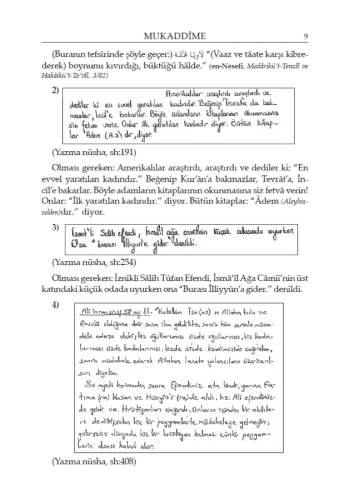 MUKADDİME 9
(Buranın tefsirinde şöyle geçer:) “(Vaaz ve tâate karşı kibre-
derek) boynunu kıvırdığı, büktüğü hâlde.” (en-Nesefî, Medârikü't-Tenzîl ve
Hakâiku't-Te'vîl, 3/82)
2)
Amerikalılar araştırdı araştırdı ve.
dediler ki en evvel yaratılan kadındır. Beğenip Tevrat'a da bak-
mazlar, İncil'e bakarlar. Böyle adamların kitaplarının okunmasına
siz fetva verin. Onlar ilk yaratılan kadındır diyor. Bütün kitap-
lar “Adem (A.s)” dır, diyor.
(Yazma nüsha, sh:191)
Olması gereken: Amerikalılar araştırdı, araştırdı ve dediler ki: “En
evvel yaratılan kadındır.” Beğenip Kur'ân'a bakmazlar, Tevrât'a, İn-
cîl'e bakarlar. Böyle adamların kitaplarının okunmasına siz fetvâ verin!
Onlar: “İlk yaratılan kadındır.” diyor. Bütün kitaplar: “Âdem (Aleyhis-
selâm)dır.” diyor.
3)
İznik'li Salih Efendi, İsmail Ağa camiinin küçük odasında uyurken
Ona “burası İlliyyin'e gider” denildi.
(Yazma nüsha, sh:254)
Olması gereken: İznikli Sâlih Tûfan Efendi, İsmâ'îl Ağa Câmii'nin üst
katındaki küçük odada uyurken ona “Burası İlliyyûn'a gider.” denildi.
4)
Ali İmran suresi 58 ay 61. “Habibim İsa (as) ın Allahın kulu ve
Rasulü olduğuna dair sana ilim geldikten sonra kim seninle müca-
dele ederse deki; biz oğullarımızı sizde oğullarınızı, biz kadın-
larımızı sizde kadınlarınızı, bizde sizde kendimizide çağıralım,
sonra mübahele ederek Allahın laneti yalancıların üzerine ol-
sun diyelim.
Bu ayeti kerimeden sonra Efendimiz
tıma (ra) Hasan ve Hüseyin'i (ra) de aldı, hz. Ali efendimiz-
de geldi ve Hristiyanları çağırdı. Onların içinden bir
rı hiç bir peygamberle mübahaleye gelmeyin;
gelirseniz dünyada hiç bir hristiyan kalmaz. çünkü peygam-
berin duası kabul olur.
(Yazma nüsha, sh:408)